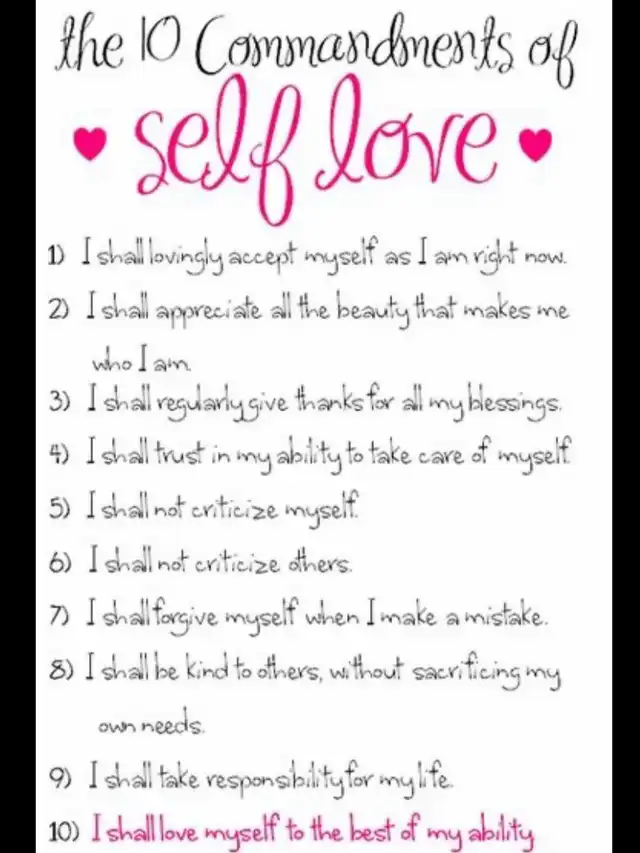 the 10 Commandments of
self love
1) I shall lovingly accept myself as I am right now.
2) I shall appreciate all the beauty that makes me
who I am.
3) I shall regularly give thanks for all my blessings.
4) I shall trust in my ability to take care of myself.
5) I shall not criticize myself.
6) I shall not criticize others.
7) I shall forgive myself when I make a mistake.
8) I shall be kind to others, without sacrificing my
own needs.
9) I shall take responsibility for my life.
10) I shall love myself to the best of my ability